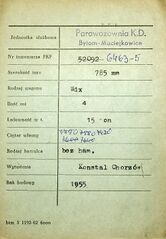 Jednostka służbowa Parowozownia K.D.
Bytom-Maciejkowice
Nr inwentarza PKP 52092 6463-5
Szerokość toru 785 mm
Rodzaj wagonu Wdx
Ilość osi 4
Ładowność w t. 15 ton
Ciężar własny
Rodzaj hamulca bez ham.
Wytwórnia Konstal Chorzów
Rok budowy 1955